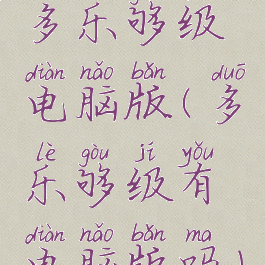 多乐够级
diàn nǎo bǎn duō
电脑版(多
lè gòu jí yǒu
乐够级有
diàn nǎo bǎn ma
电脑版吗)